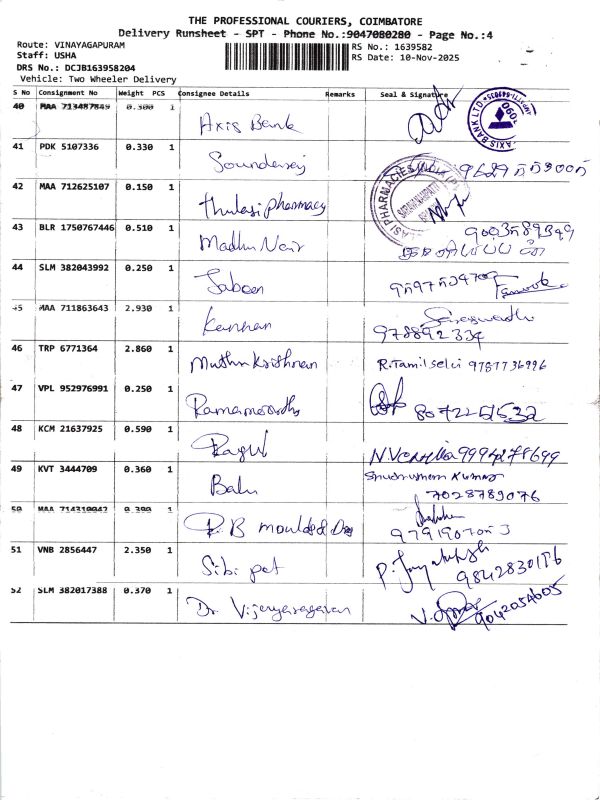 THE PROFESSIONAL COURIERS, COIMBATORE
Delivery Runsheet - SPT - Phone No.:9047080280 - Page No.:4
Route: VINAYAGAPURAM
RS No.: 1639582
Staff: USHA
RS Date: 10-Nov-2025
DRS No.: DCJB163958204
Vehicle: Two Wheeler Delivery
S No Consignment No Weight PCS Consignee Details Remarks Seal & Signature
40 MAA 713487849 0.300 1 Axis Bank
AXIS BANK LTD
41 PDK 5107336 0.330 1
42 MAA 712625107 0.150 1 thulasi pharmacy
43 BLR 1750767446 0.510 1 Madhu Nair
44 SLM 382043992 0.250 1
45 MAA 711863643 2.930 1 Kannan
978892334
46 TRP 6771364 2.860 1 Muthu Krishnan R. Tamil Selvi 9787736996
47 VPL 952976991 0.250 1 Ramamoorthy
48 KCM 21637925 0.590 1 Ragul
49 KVT 3444709 0.360 1 Balu
7028789076
50 MAA 714310042 0.390 1
51 VNB 2856447 2.350 1 Sibi pet
9842830176
52 SLM 382017388 0.370 1 Dr. Vijayaragavan
9042054605